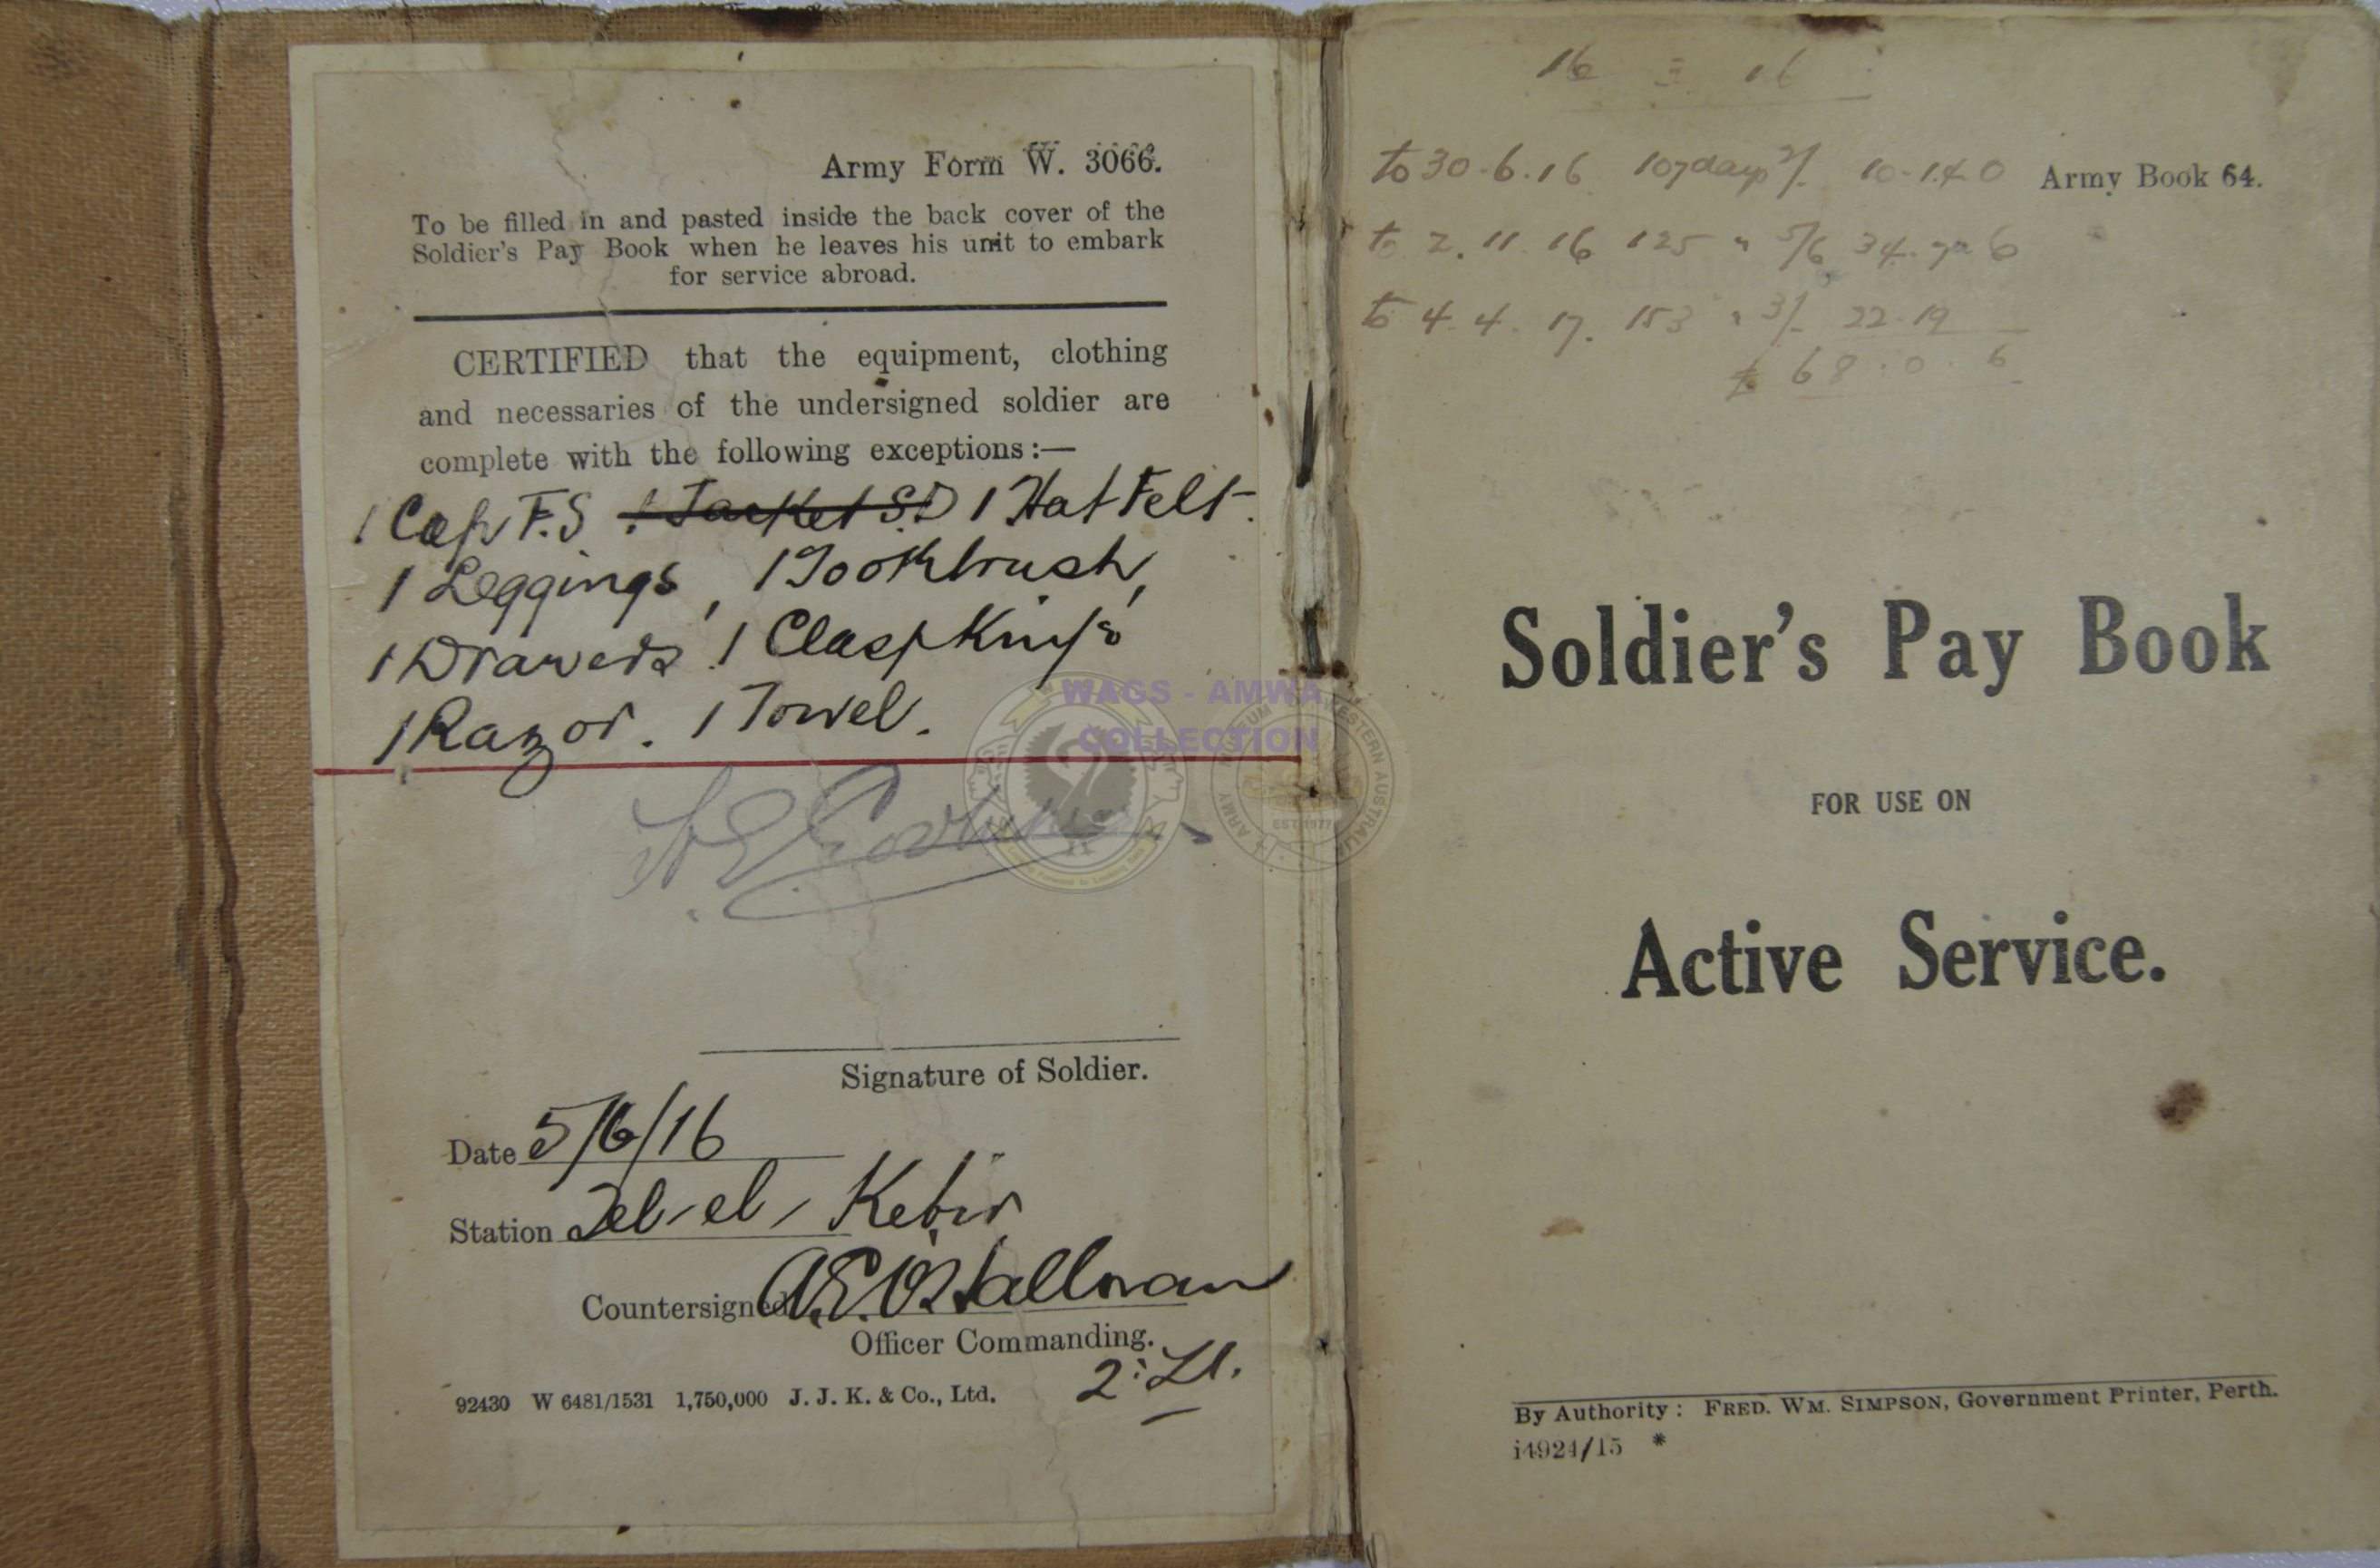 Army Form W. 3066.
To be filled in and pasted inside the back cover of the
Soldier's Pay Book when he leaves his unit to embark
for service abroad.
CERTIFIED that the equipment, clothing
and necessaries of the undersigned soldier are
complete with the following exceptions:—
1 Cap F.S 1 Jacket S.D 1 Hat Felt.
1 Leggings, 1 Toothbrush,
1 Drawers 1 Clasp Knife
1 Razor. 1 Towel.
Signature of Soldier.
Date 5/6/16
Station Tel-el-Kebir
Countersigned A.E. O'Halloran
Officer Commanding.
2: Lt.
92430 W 6481/1531 1,750,000 J. J. K. & Co., Ltd.
WAGS - AMWA
COLLECTION
16 3 16
to 30.6.16 107 days 2/- 10-14-0 Army Book 64.
to 2.11.16 125 " 5/6 34.7.6
to 4.4.17. 153 " 3/- 22-19
£ 68.0.6
Soldier's Pay Book
FOR USE ON
Active Service.
By Authority: FRED. WM. SIMPSON, Government Printer, Perth.
i4924/15 *